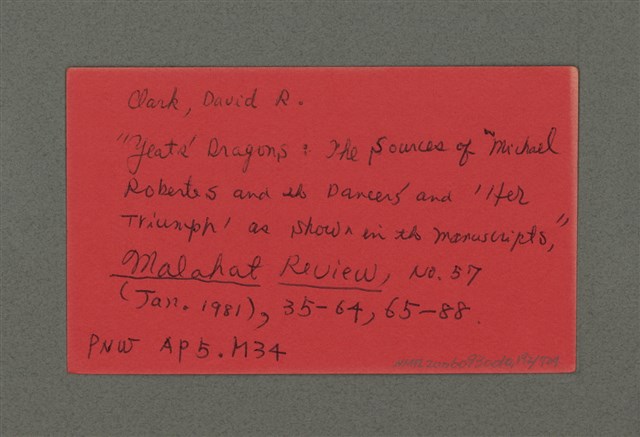 Clark, David R.
"Yeats' Dragons : The Sources of "Michael
Robartes and the Dancer' and 'Her
Triumph' as shown in the manuscripts,"
Malahat Review, No. 57
(Jan. 1981), 35-64, 65-88.
PNW AP5.M34